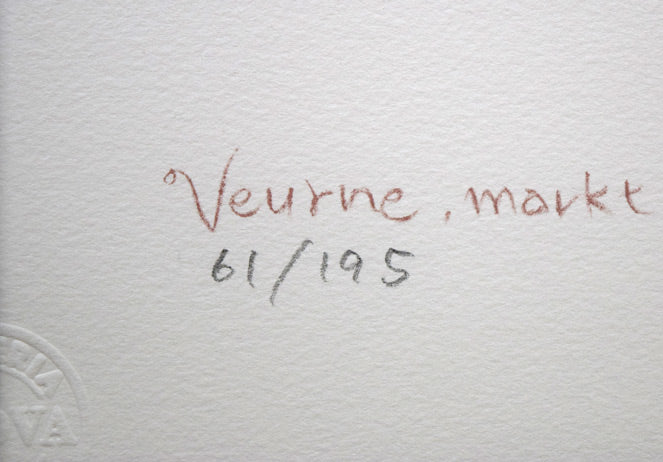 Veurne, markt
61/195
VA